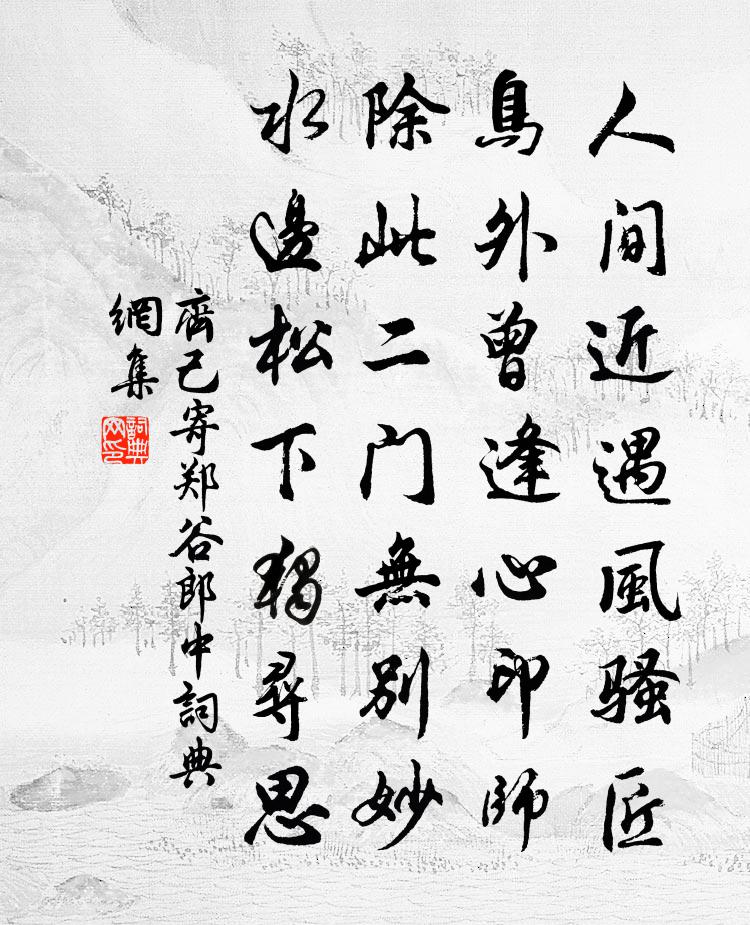 人間近遇風騷匠
鳥外曾逢心印師
除此二門無別妙
水邊松下獨尋思
齊己寄郑谷郎中詞典
網集
詞典
网印